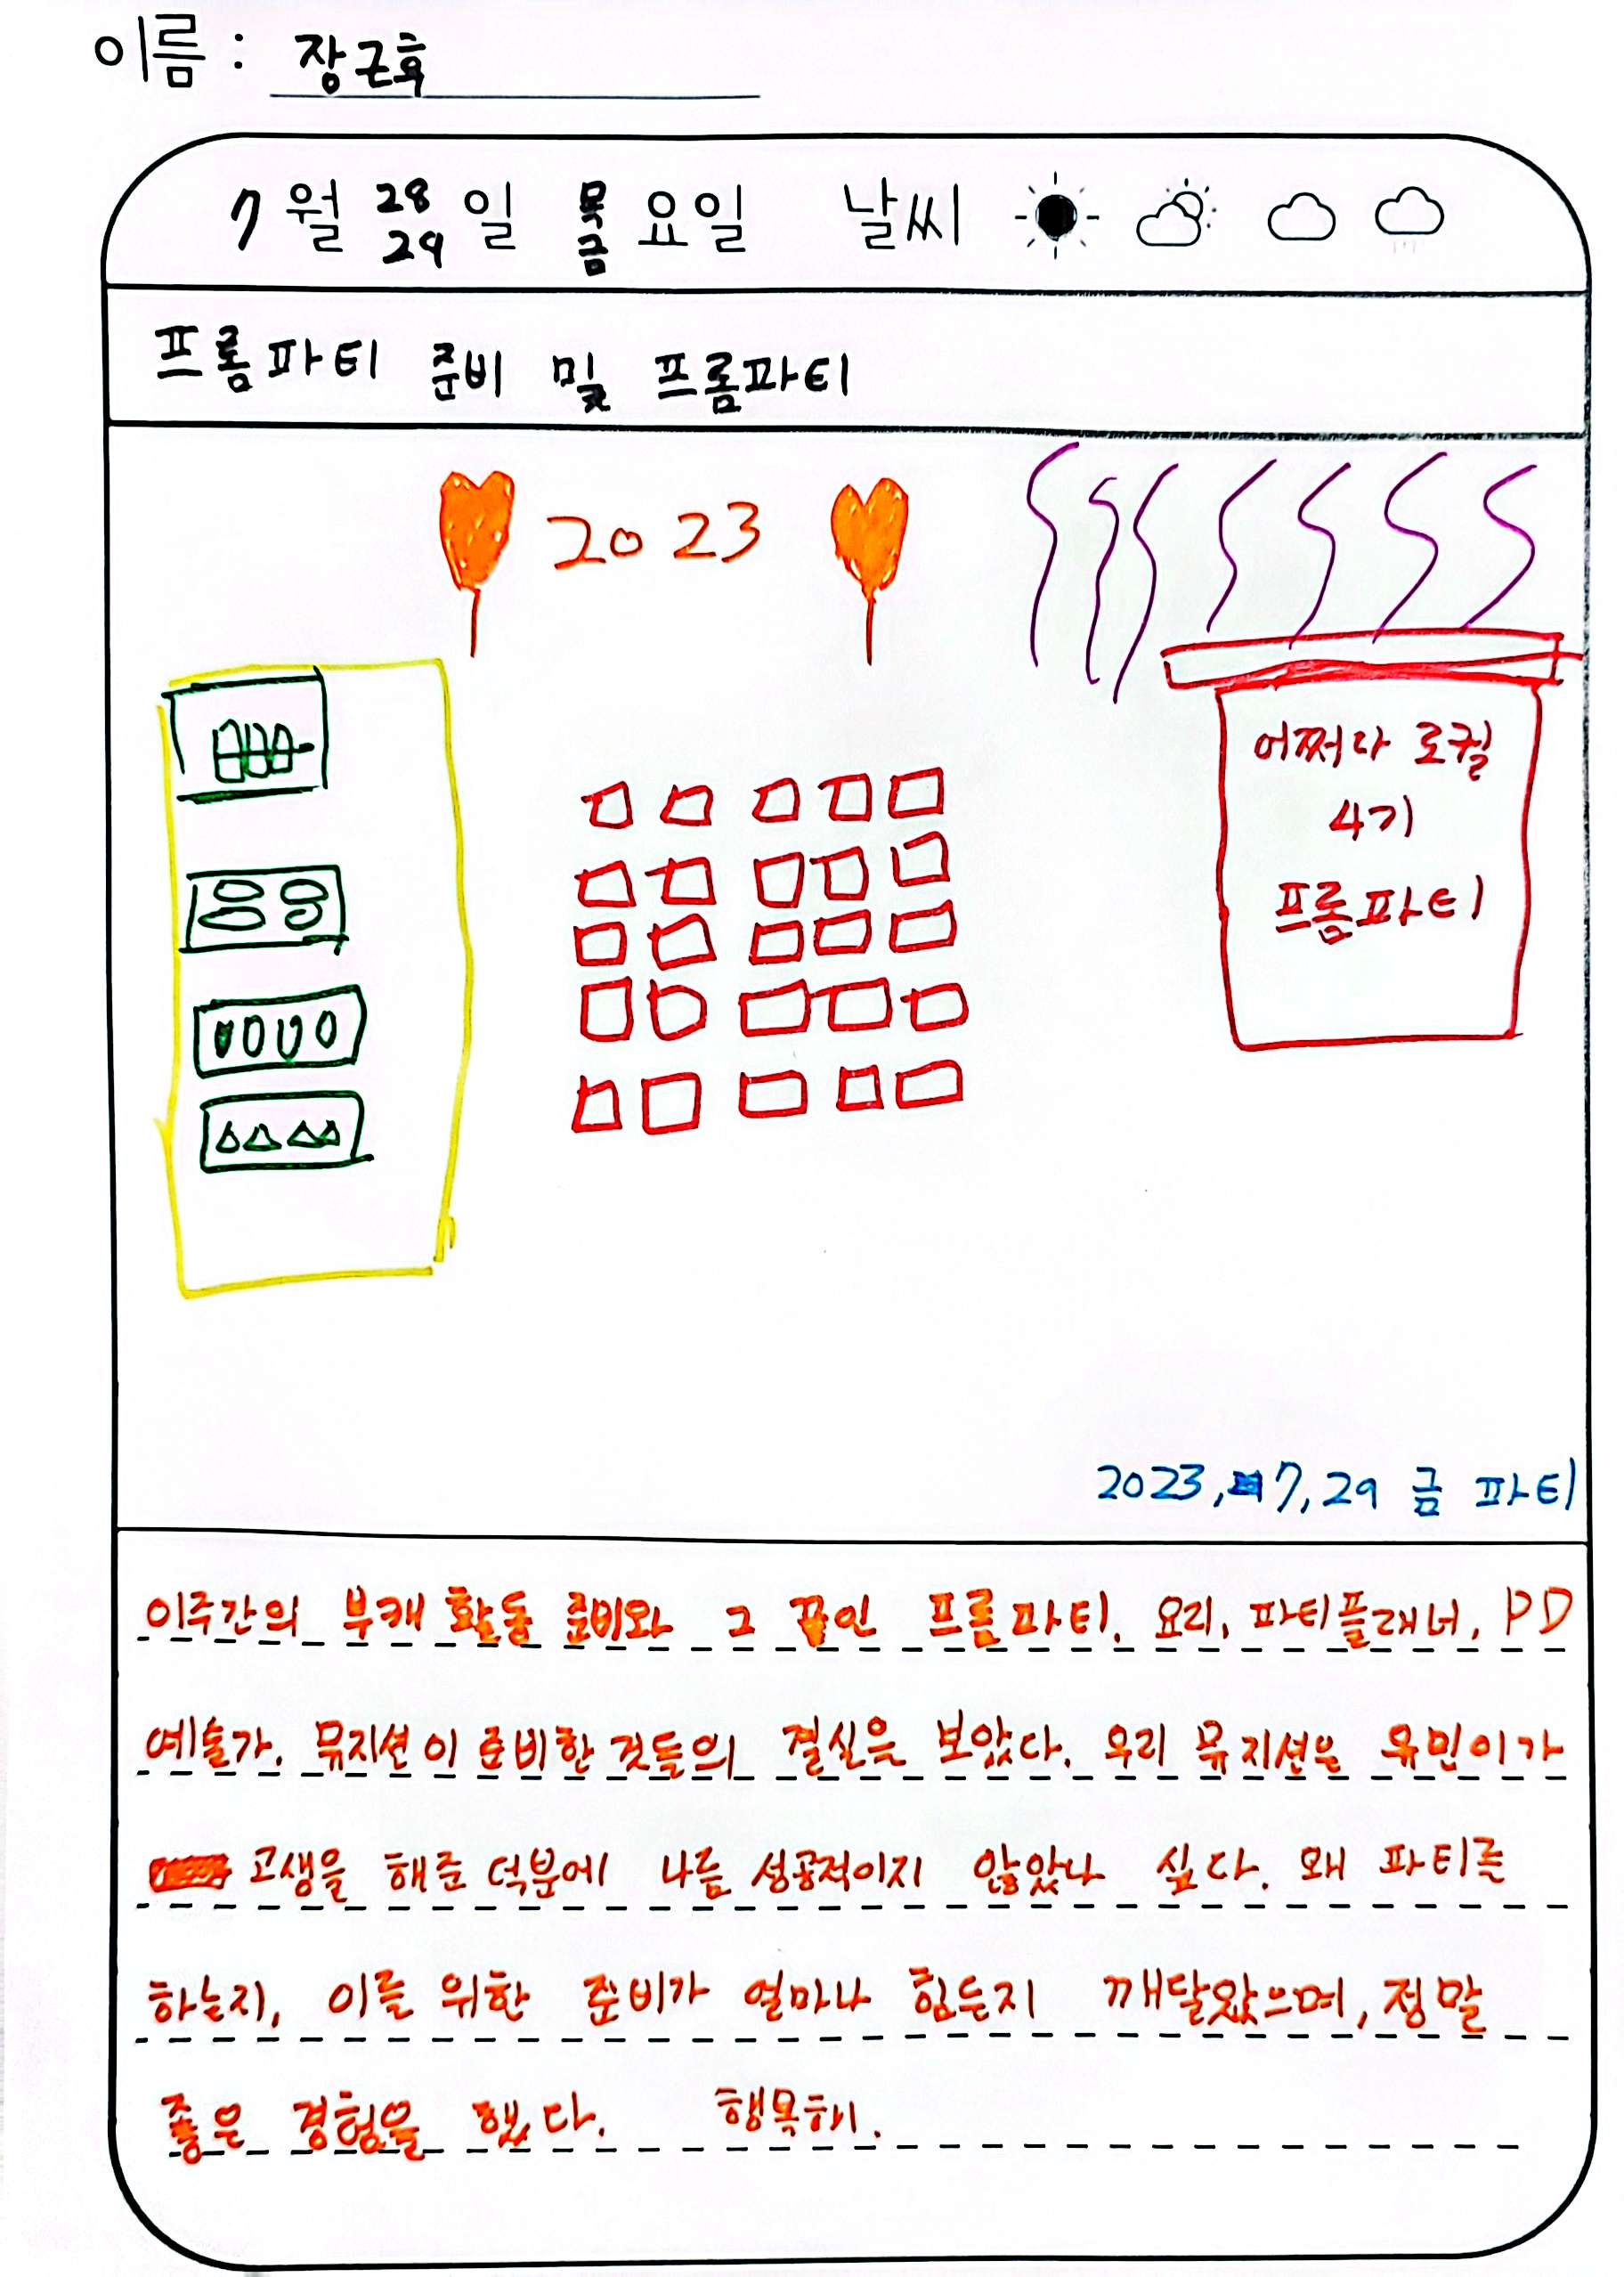 이름 : 장근휴
7월 28 일 목 요일 날씨
29 금
프롬파티 준비 및 프롬파티
2023
어쩌다 로컬
4기
프롬파티
2023, 7, 29 금 파티
이주간의 부캐 활동 준비와 그 끝인 프롬파티. 요리, 파티플래너, PD
예술가, 뮤지션이 준비한 것들의 결실을 보았다. 우리 뮤지션은 유민이가
고생을 해준 덕분에 나름 성공적이지 않았나 싶다. 왜 파티를
하는지, 이를 위한 준비가 얼마나 힘든지 깨달았으며, 정말
좋은 경험을 했다. 행복해.